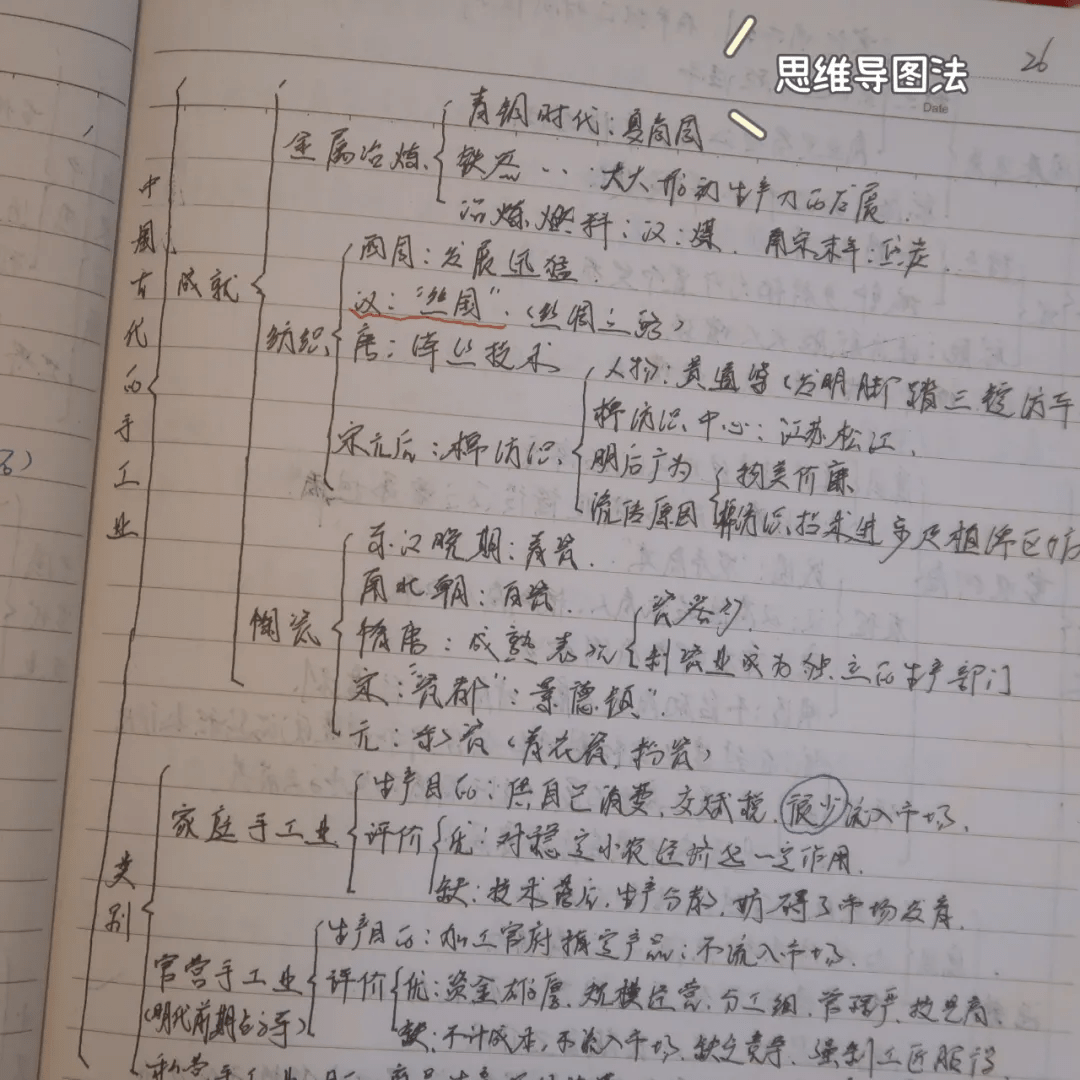 思维导图法
26
Date
中国古代的手工业
成就
金属冶炼
青铜时代：夏商周
铁器··：大大推动生产力的发展.
冶炼燃料：汉：煤. 南宋末年：焦炭.
纺织
西周：发展迅猛
汉："丝国".（丝绸之路）
唐：缂丝技术
宋元后：棉纺织
人物：黄道婆（发明脚踏三锭纺车
棉纺织中心：江苏松江.
明后广为流传原因
物美价廉
棉纺织技术进步及植棉区扩
陶瓷
东汉晚期：青瓷.
南北朝：白瓷.
隋唐：成熟表现
瓷器
制瓷业成为独立的生产部门
宋："瓷都"：景德镇".
元：彩瓷（青花瓷，粉瓷）
类别
家庭手工业
生产目的：供自己消费，交赋税，很少流入市场.
评价
优：对稳定小农经济起一定作用.
缺：技术落后，生产分散，妨碍了市场发育.
官营手工业
（明代前期占主导）
生产目的：加工官府指定产品；不流入市场.
评价
优：资金雄厚，规模经营，分工细，管理严，技艺高.
缺：不计成本，不流入市场，缺乏竞争，强制工匠服役
私营手工业